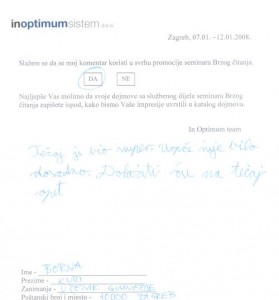 inoptimumsistem d.o.o.
Zagreb, 07.01. –12.01.2008.
Slažem se da se moj komentar koristi u svrhu promocije seminara Brzog čitanja.
DA NE
Najljepše Vas molimo da svoje dojmove sa službenog dijela seminara Brzog
čitanja zapišete ispod, kako bismo Vaše impresije uvrstili u katalog dojmova.
In Optimum team
Tečaj je bio super. Uopće nije bilo
dosadno. Dolaziti ću na tečaj
opet
Ime - BORNA
Prezime -
Zanimanje - UČENIK GIMNAZIJE
Poštanski broj i mjesto - 10000 ZAGREB